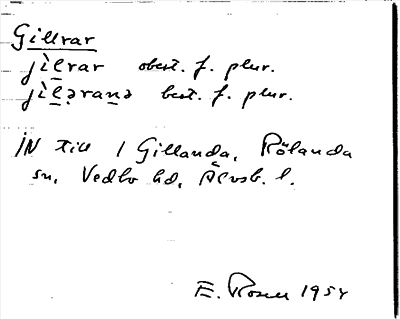 Gillrar
jìlrar obest. f. plur.
jìləranə best. f. plur.
IN till 1 Gillanda, Rölanda
sn, Vedbo hd, Älvsb. l.
E. Rosen 1954